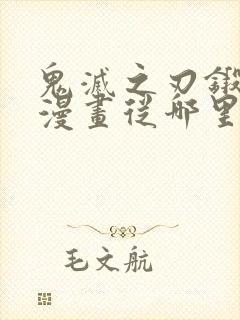 鬼滅之刃鍛
漫畫從哪里
毛文航